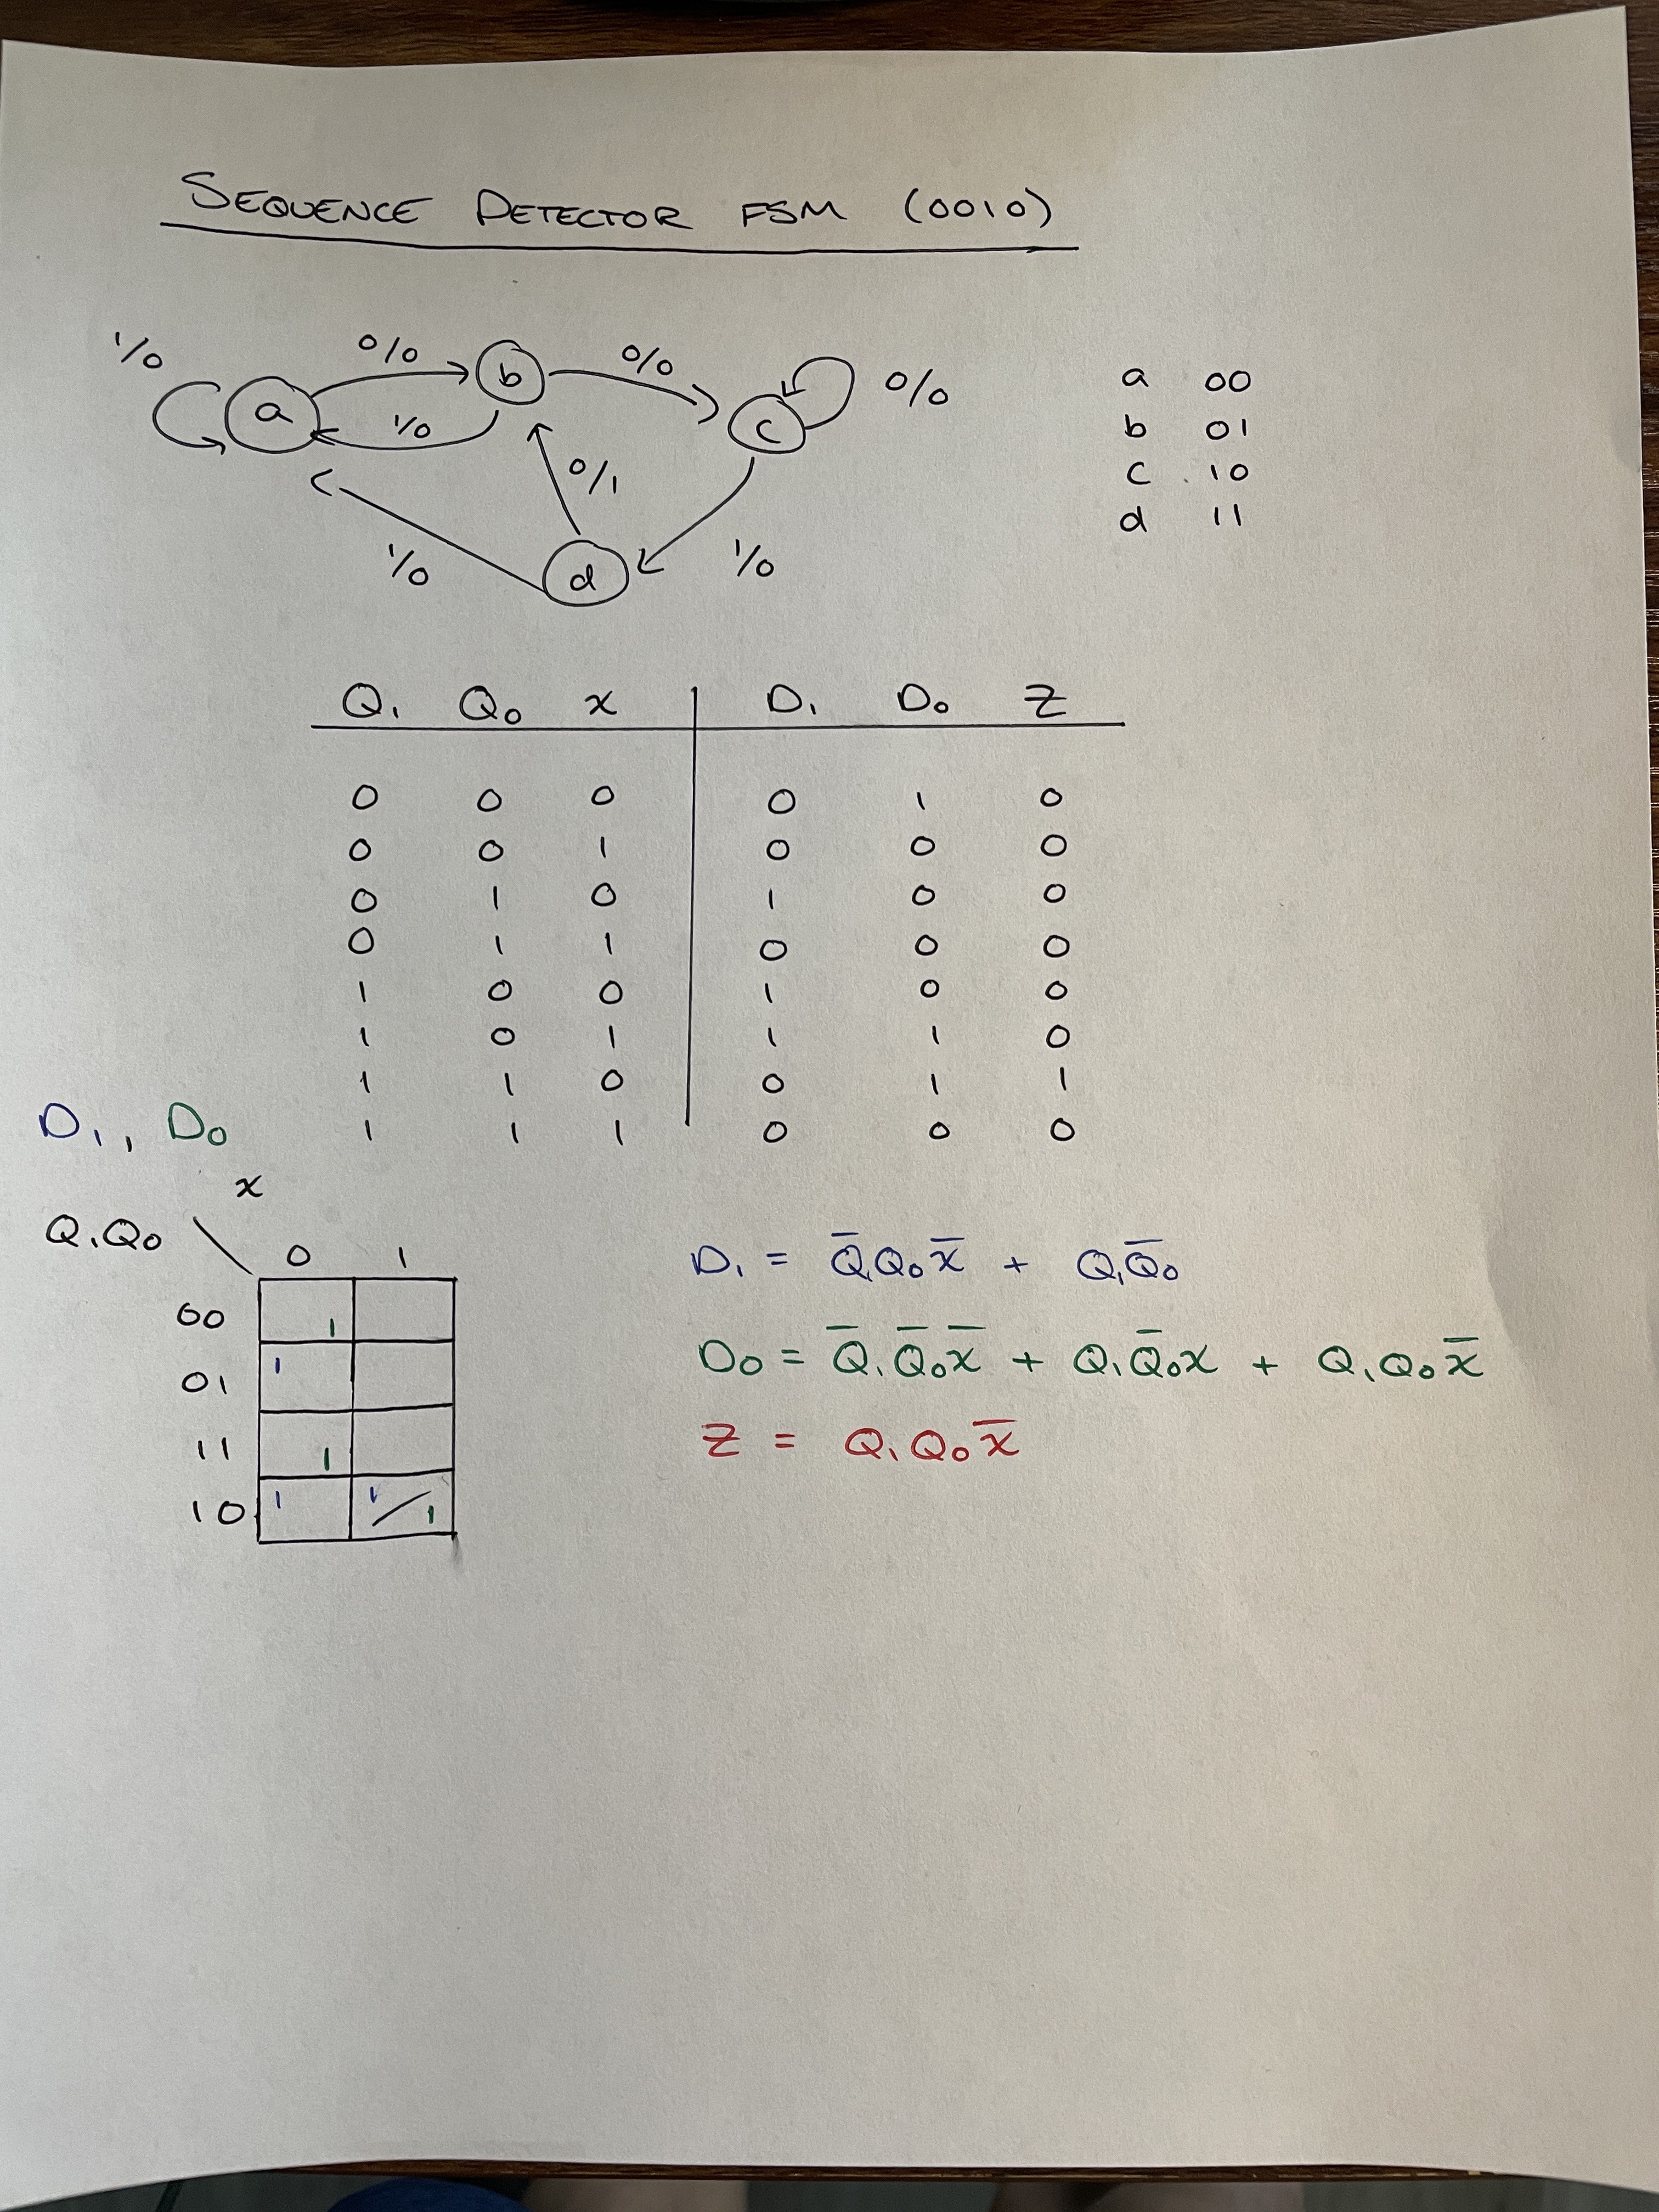 SEQUENCE DETECTOR FSM (0010)
1/0 0/0 b 0/0 0/0
a 1/0 c
0/1
1/0 d 1/0
a 00
b 01
c 10
d 11
Q₁ Q₀ x | D₁ D₀ Z
0 0 0 0 1 0
0 0 1 0 0 0
0 1 0 1 0 0
0 1 1 0 0 0
1 0 0 1 0 0
1 0 1 1 1 0
1 1 0 0 1 1
1 1 1 0 0 0
D₁, D₀
x
Q₁Q₀ \ 0 1
00 1
01 1
11 1
10 1 1/1
D₁ = Q̅₁Q₀x̅ + Q₁Q̅₀
D₀ = Q̅₁Q̅₀x̅ + Q₁Q̅₀x + Q₁Q₀x̅
Z = Q₁Q₀x̅